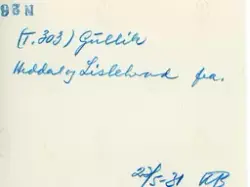 93N
(T.303) Gullik
Heddal og Lislebrod fra.
22/5-31 KB